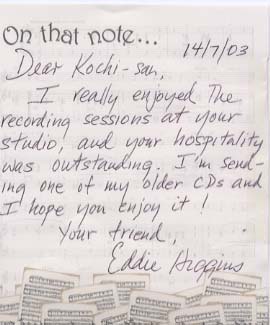 On that note...
14/7/03
Dear Kochi-san,
I really enjoyed the
recording sessions at your
studio, and your hospitality
was outstanding. I'm send-
ing one of my older CDs and
I hope you enjoy it!
Your friend,
Eddie Higgins